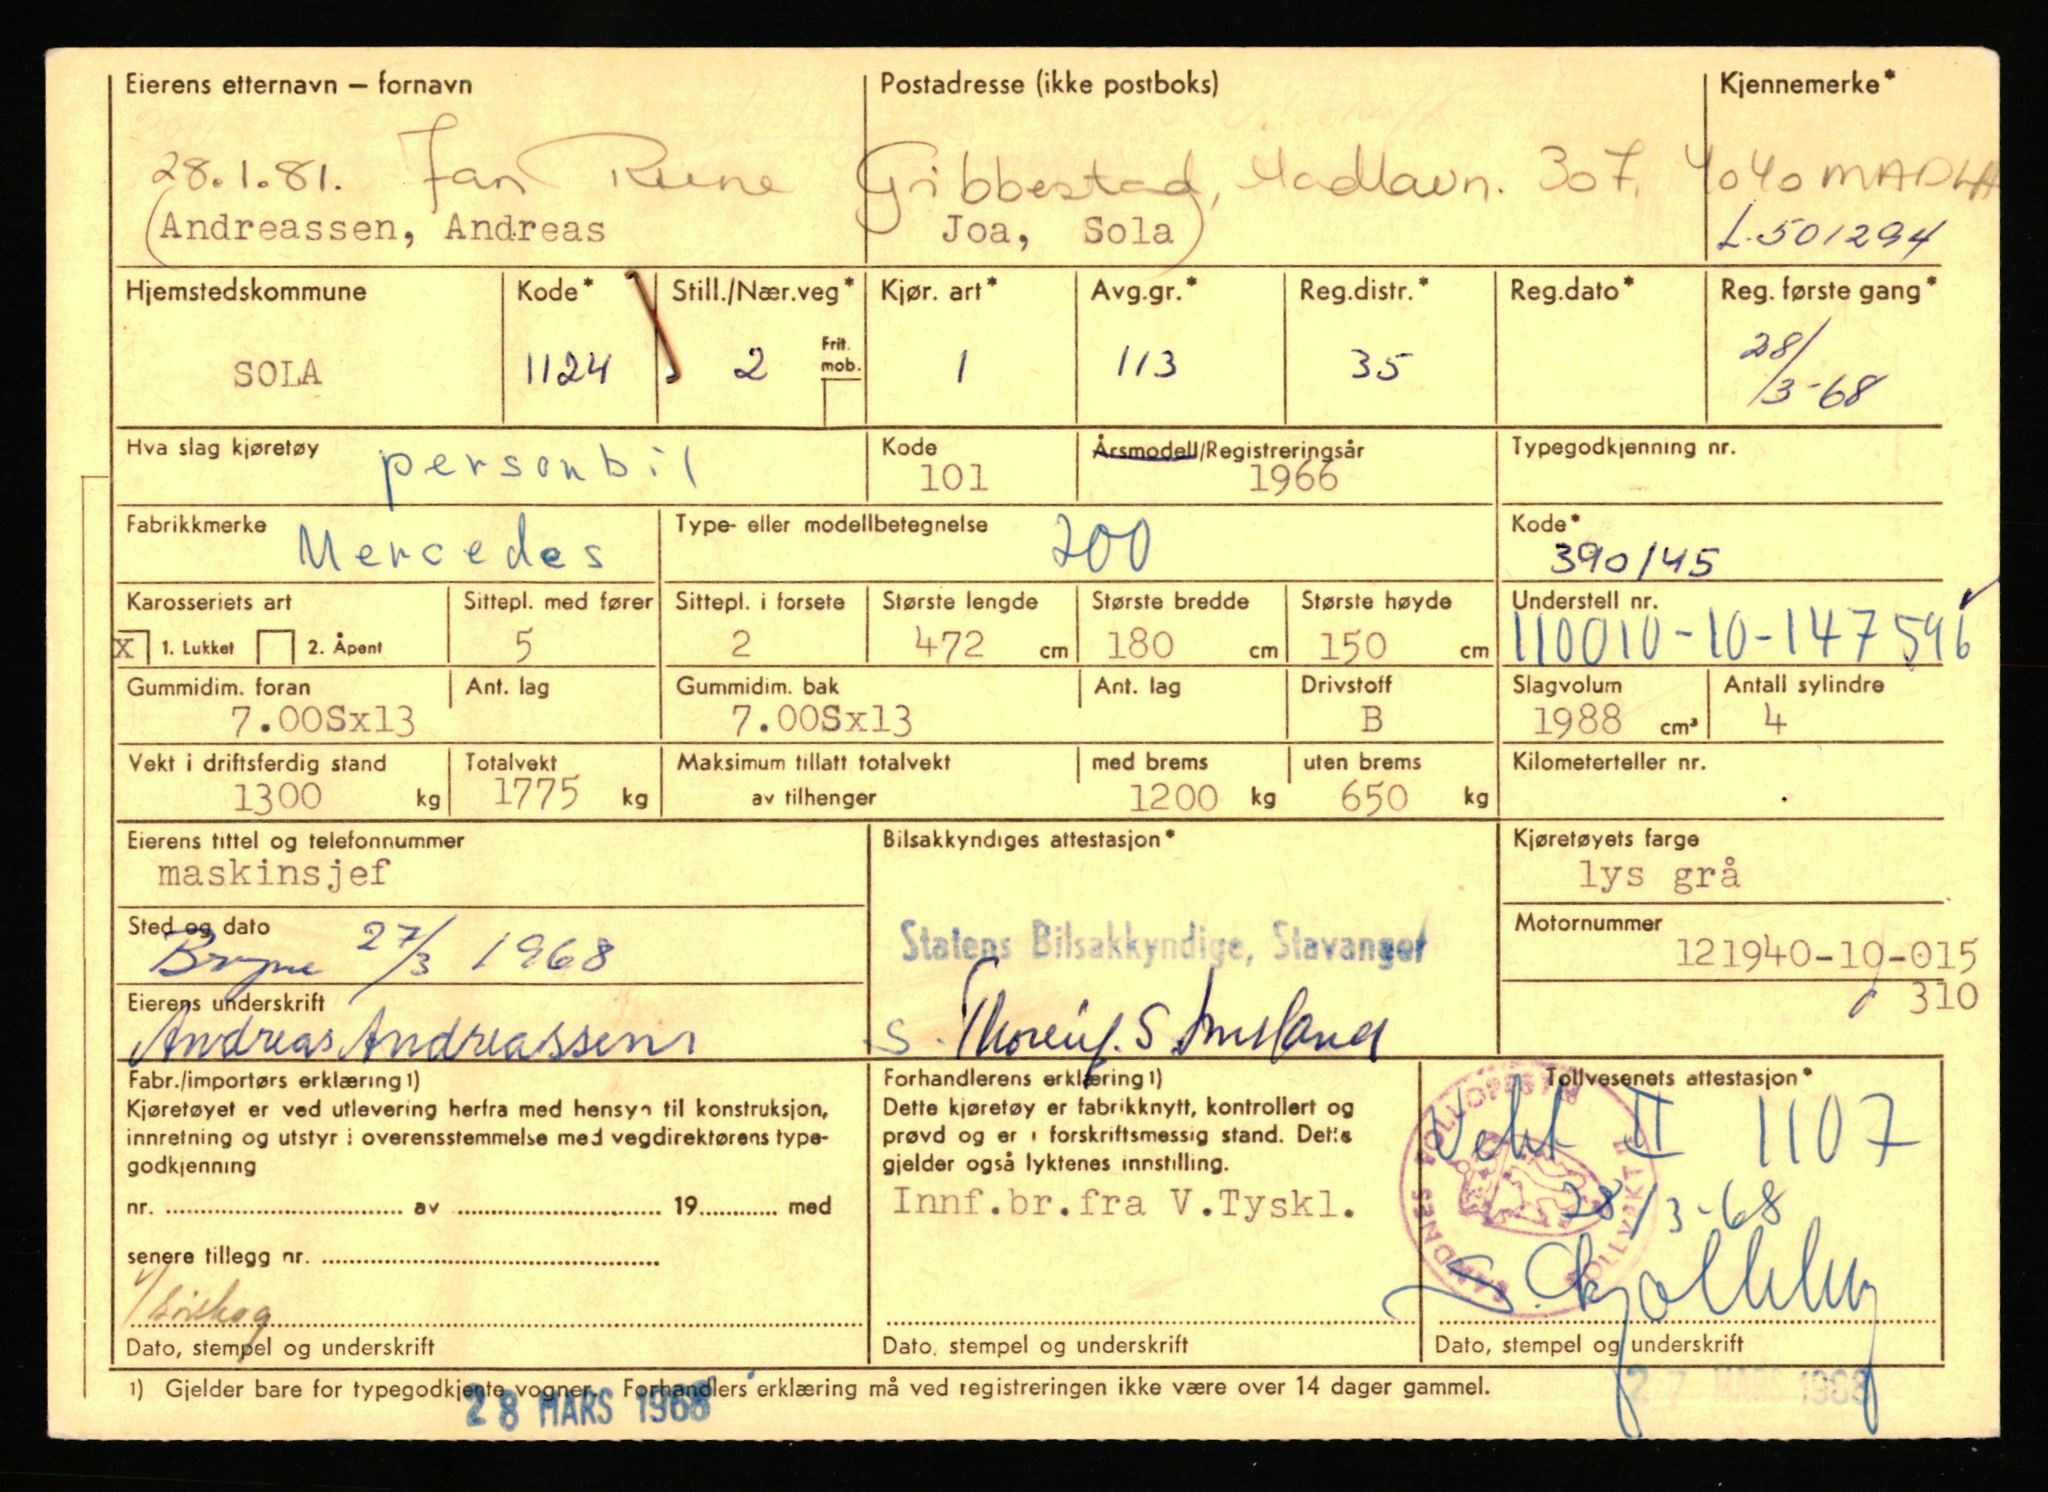 Eierens etternavn — fornavn
Postadresse (ikke postboks)
Kjennemerke*
28.1.81. Jan Rune Gribbestad, Madlavn. 307. 4040 MADLA
(Andreassen, Andreas Joa, Sola)
L-501294
Hjemstedskommune Kode* Still./Nær.veg* Kjør. art* Avg.gr.* Reg.distr.* Reg.dato* Reg. første gang*
Frit. mob.
SOLA 1124 2 1 113 35 28/3-68
Hva slag kjøretøy Kode Årsmodell/Registreringsår Typegodkjenning nr.
personbil 101 1966
Fabrikkmerke Type- eller modellbetegnelse Kode*
Mercedes 200 390/45
Karosseriets art Sittepl. med fører Sittepl. i forsete Største lengde Største bredde Største høyde Understell nr.
X 1. Lukket 2. Åpent 5 2 472 cm 180 cm 150 cm 110010-10-147596
Gummidim. foran Ant. lag Gummidim. bak Ant. lag Drivstoff Slagvolum Antall sylindre
7.00Sx13 7.00Sx13 B 1988 cm³ 4
Vekt i driftsferdig stand Totalvekt Maksimum tillatt totalvekt med brems uten brems Kilometerteller nr.
1300 kg 1775 kg av tilhenger 1200 kg 650 kg
Eierens tittel og telefonnummer Bilsakkyndiges attestasjon* Kjøretøyets farge
maskinsjef lys grå
Sted og dato Motornummer
Bryne 27/3 1968 Statens Bilsakkyndige, Stavanger 121940-10-015
310
Eierens underskrift
Andreas Andreassen
Fabr./importørs erklæring1) Forhandlerens erklæring1) Tollvesenets attestasjon*
Kjøretøyet er ved utlevering herfra med hensyn til konstruksjon,
innretning og utstyr i overensstemmelse med vegdirektørens type-
godkjenning
Dette kjøretøy er fabrikknytt, kontrollert og
prøvd og er i forskriftsmessig stand. Dette
gjelder også lyktenes innstilling.
Vekt II 1107
28/3-68
nr. av 19 med
Innf.br.fra V.Tyskl.
senere tillegg nr.
Dato, stempel og underskrift Dato, stempel og underskrift Dato, stempel og underskrift
1) Gjelder bare for typegodkjente vogner. Forhandlers erklæring må ved registreringen ikke være over 14 dager gammel.
28 MARS 1968
27 MARS 1968